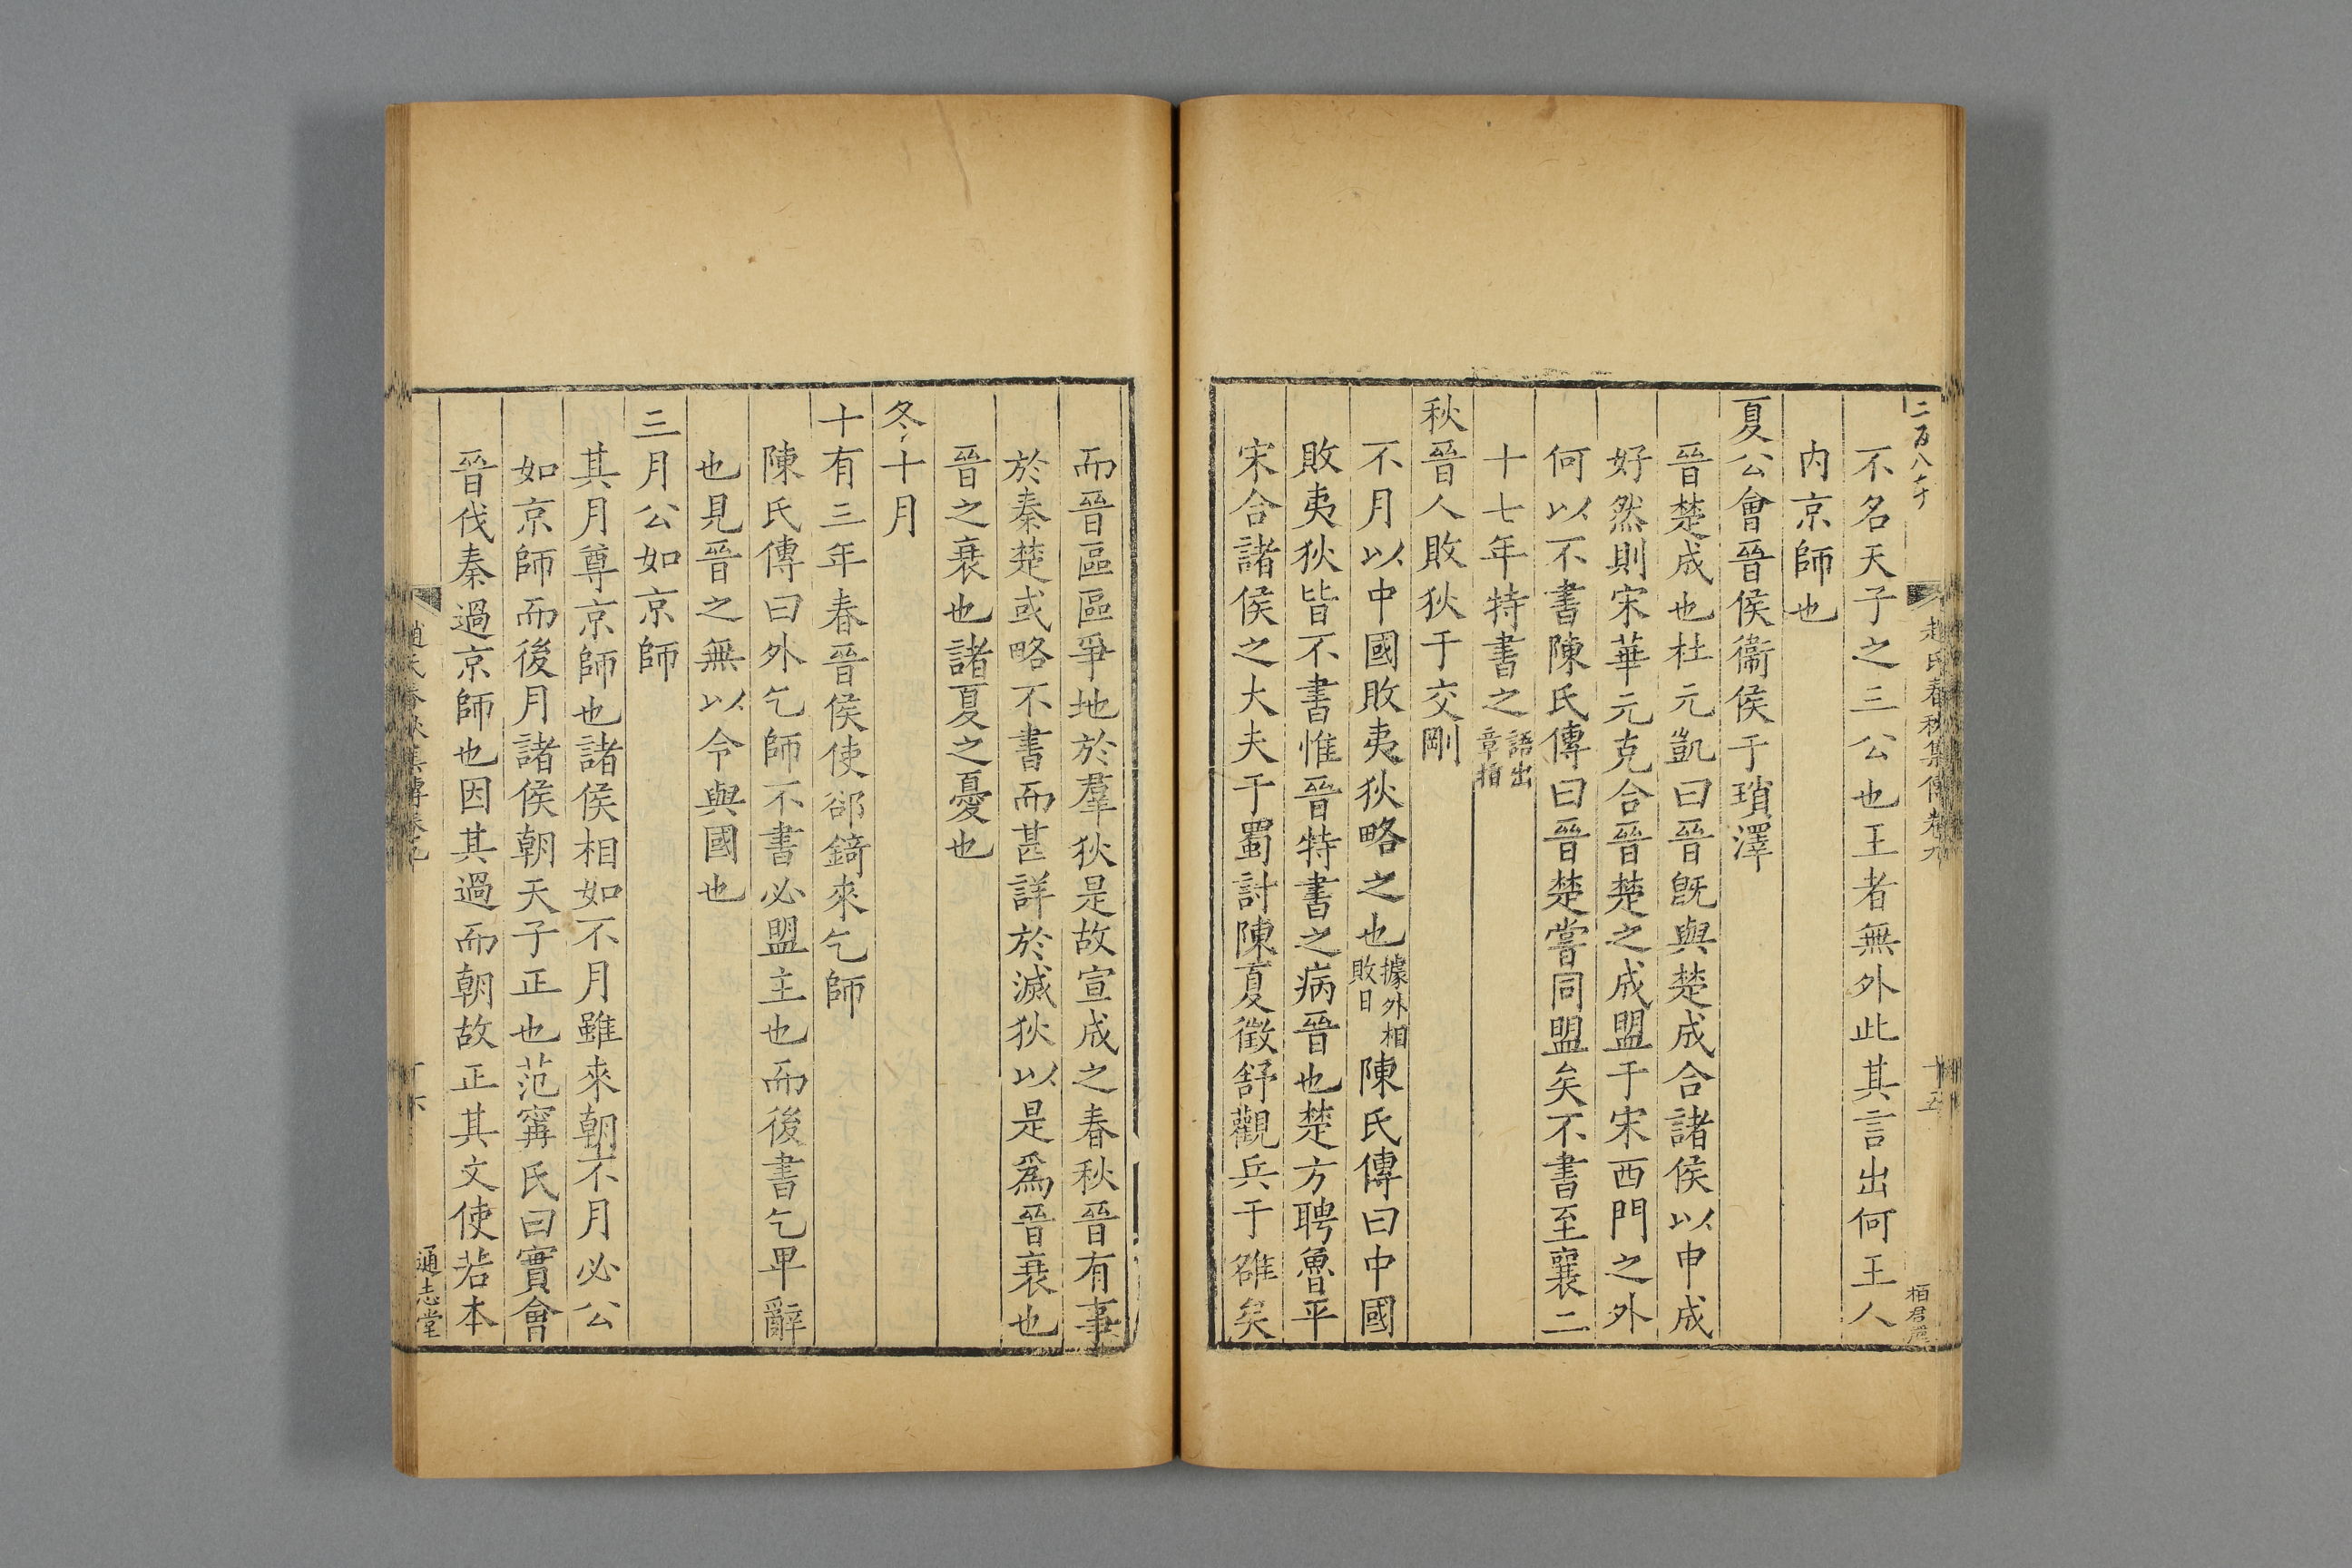 二百八十
趙氏春秋集傳卷九
十五
不名天子之三公也王者無外此其言出何王人
内京師也
夏公會晉侯衞侯于瑣澤
晉楚成也杜元凱曰晉旣與楚成合諸侯以申成
好然則宋華元克合晉楚之成盟于宋西門之外
何以不書陳氏傳曰晉楚嘗同盟矣不書至襄二
十七年特書之語出章指
秋晉人敗狄于交剛
不月以中國敗夷狄略之也據外相敗日陳氏傳曰中國
敗夷狄皆不書惟晉特書之病晉也楚方聘魯平
宋合諸侯之大夫于蜀討陳夏徵舒觀兵于雒矣
而晉區區爭地於羣狄是故宣成之春秋晉有事
於秦楚或略不書而甚詳於滅狄以是爲晉衰也
晉之衰也諸夏之憂也
冬十月
十有三年春晉侯使郤錡來乞師
陳氏傳曰外乞師不書必盟主也而後書乞卑辭
也見晉之無以令與國也
三月公如京師
其月尊京師也諸侯相如不月雖來朝不月必公
如京師而後月諸侯朝天子正也范甯氏曰實會
晉伐秦過京師也因其過而朝故正其文使若本
趙氏春秋集傳卷九
十六
通志堂